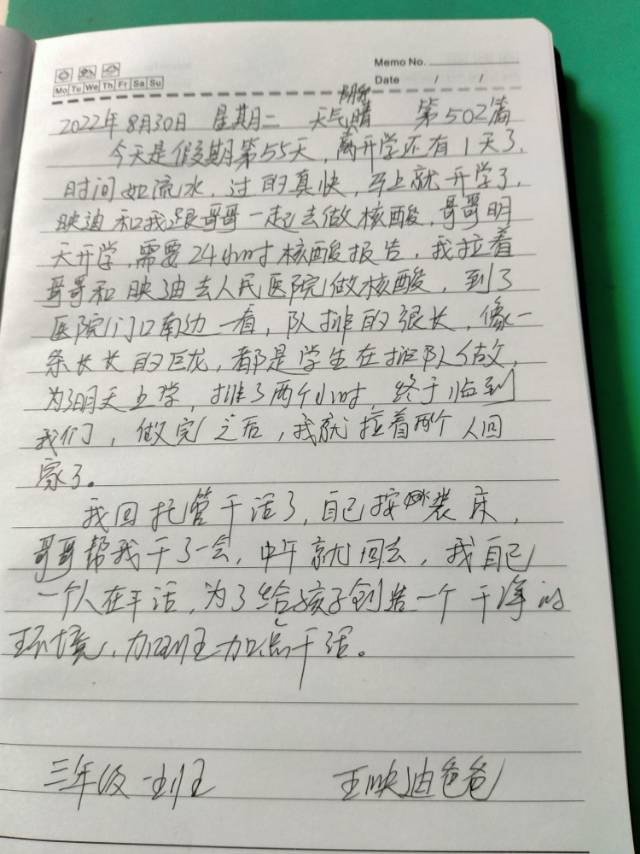 Memo No.
Mo Tu We Th Fr Sa Su
Date / /
2022年8月30日 星期二 天气晴 第502篇
今天是假期第55天,离开学还有1天了,
时间如流水,过的真快,马上就开学了,
映迪和我跟哥哥一起去做核酸,哥哥明
天开学,需要24小时核酸报告,我拉着
哥哥和映迪去人民医院做核酸,到了
医院门口南边一看,队排的很长,像一
条长长的巨龙,都是学生在排队做,
为了明天上学,排了两个小时,终于临到
我们,做完之后,我就拉着两个人回
家了。
我回托管干活了,自己按装床,
哥哥帮我干了一会,中午就回去,我自己
一个人在干活,为了给孩子创造一个干净的
环境,加班加点干活。
三年级一班 王映迪爸爸